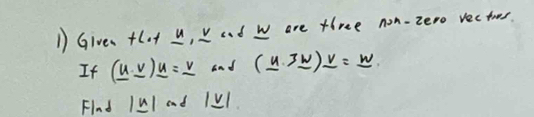 1) Given that u, v and w are three non-zero vectors.
If (u.v)u = v and (u.3w)v = w.
Find |u| and |v|.